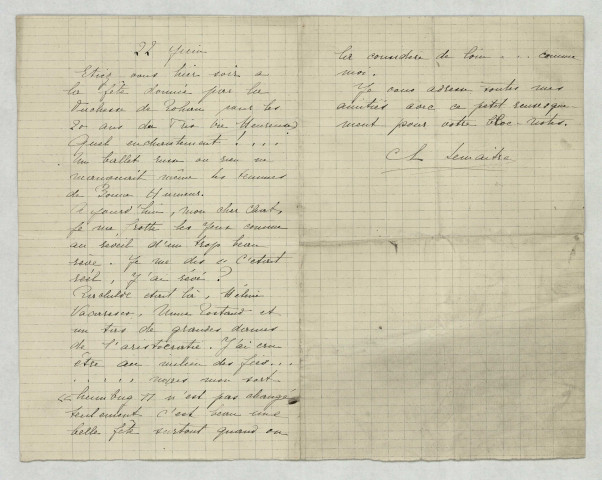 22 Juin
Etiez vous hier soir a
la fête donnée par la
Duchesse de Rohan pour les
20 ans du
Quel enchantement ! ...
Un ballet russe ou rien ne
manquait même les femmes
de
mon cher
je me frotte les yeux comme
au réveil d'un trop beau
rêve. Je me dis « C'etait
réel, J'ai rêvé ?
Rachilde etait là, Hélène
Vacaresco, Mme Rostand et
un tas de grandes dames
de l'aristocratie. J'ai cru
être au milieu des fées...
..... mais mon sort
n'est pas changé
seulement c'est beau une
belle fête surtout quand on
la considère de loin ... comme
moi.
Je vous adresse toutes mes
amitiés avec ce petit
pour votre Bloc-Notes.
Ch Lemaitre